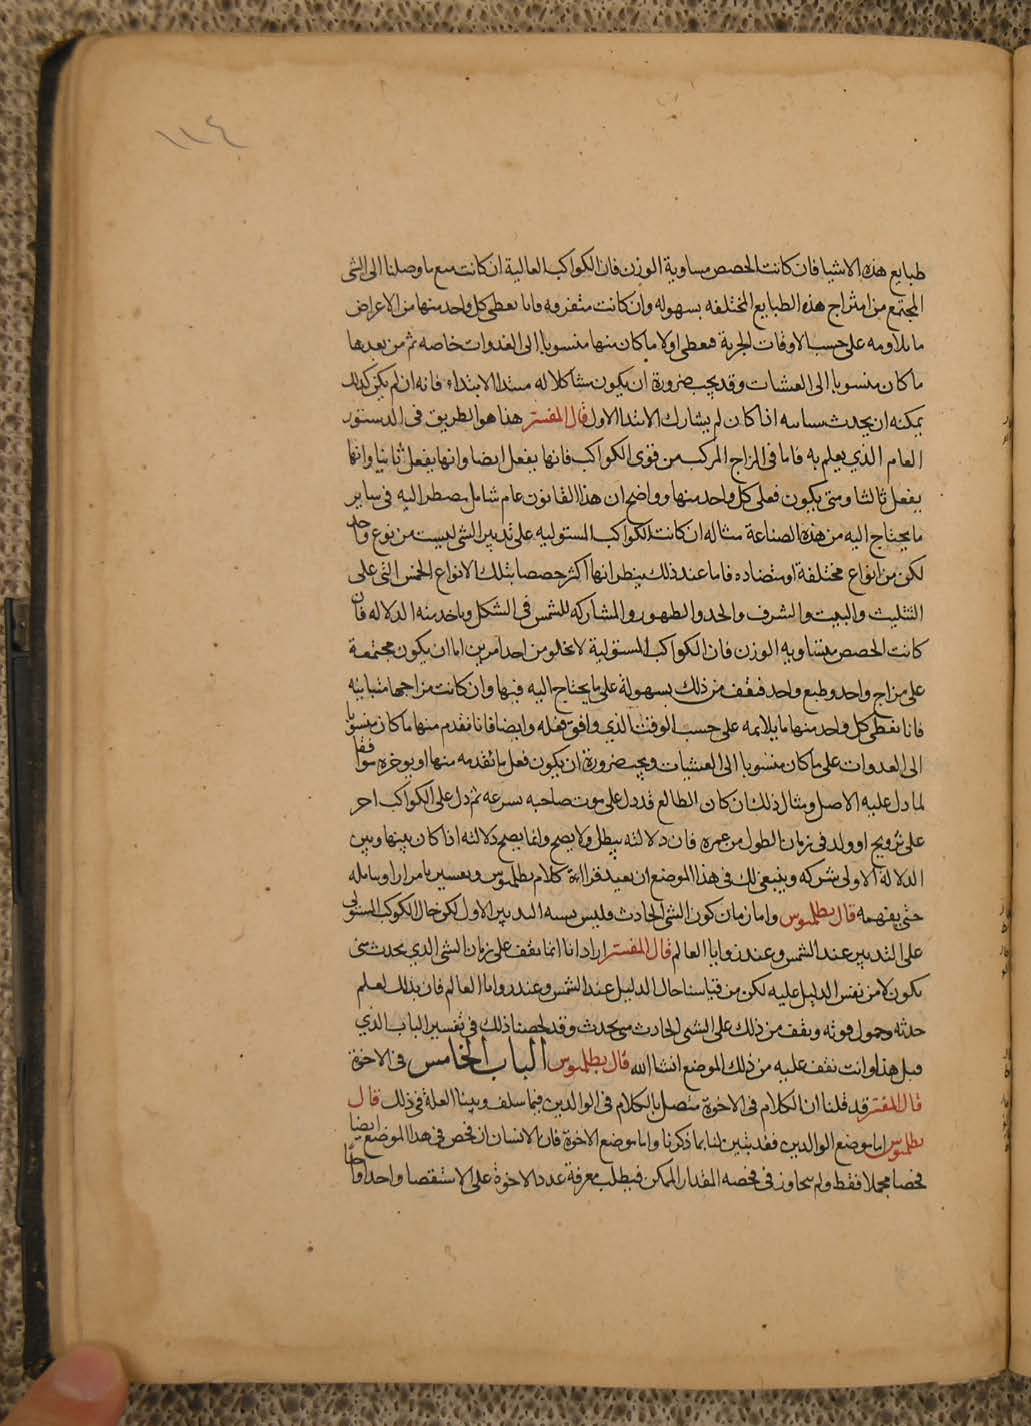 ١١٤
طبايع هذه الاشيا فان كانت الحصص مساوية الوزن فان الكواكب العالية ان كانت مع ما وصلنا الى الشى
المجتمع من امتزاج هذه الطبايع المختلفه بسهوله وان كانت متفرقه فانا نعطى كل واحد منها من الاعراض
ما يلاومه على حسب الاوقات الجزية فنعطى اولا ما كان منها منسوبا الى الغدوات خاصه ثم من بعدها
ما كان منسوبا الى العشيات وقد يجب ضرورة ان يكون مشاكلا له مبتدا الابتداء فانه ان لم يكن كذلك
يمكنه ان يحدث اذا كان لم يشارك الابتدا الاول قال المفسر هذا هو الطريق فى الدستور
العام الذي يعلم به فاما فى المزاج المركب من قوى الكواكب فانها يفعل ايضا وانها يفعل ثانيا وانها
يفعل ثالثا ومتى يكون فعل كل واحد منها وواضح ان هذا القانون عام شامل يضطر اليه فى ساير
ما يحتاج اليه من هذه الصناعة مثاله ان كانت الكواكب المستوليه على تدبير الشى ليست من نوع واحد
لكن من انواع مختلفة او متضاده فاما عند ذلك ينظر انها اكثر حصصا بتلك الانواع الخمس التى على
التثليث والبيت والشرف والحد والظهور والمشاركه للشمس فى الشكل وياخد منه الدلاله فان
كانت الحصص متساويه الوزن فان الكواكب المستولية لا تخلو من احد امرين اما ان يكون مجتمعة
على مزاج واحد وطبع واحد فنقف من ذلك بسهولة على ما يحتاج اليه فيها وان كانت مزاجها متباينه
فانا نعطى كل واحد منها ما يلايمه على حسب الوقت الذي وافق فعله وايضا فانا نقدم منها ما كان منسوبا
الى الغدوات على ما كان منسوبا الى العشيات ويجب ضرورة ان يكون فعل ما نقدمه منها او يوخره موافقا
لما دل عليه الاصل ومثال ذلك ان كان الطالع قد دل على موت صاحبه بسرعه ثم دل على الكواكب اخر
على تزويج او ولد فى زمان اطول من عمره فان دلالته يبطل ولا يصح وانما يصح دلالته اذا كان بينها وبين
الدلالة الاولى شركه وينبغى لك فى هذا الموضع ان يعيد قراءة كلام بطلميوس وتفسيرنا مرارا ويتامله
حتى يفهمه قال بطلميوس واما زمان كون الشى الحادث فليس الاول لكن حال الكوكب المستولى
على التدبير عند الشمس وعند زوايا العالم قال المفسر اراد انا انما نقف على زمان الشى الذي يحدث متى
يكون لا من نفس الدليل عليه لكن من قياسنا حال الدليل عند الشمس وعند زوايا العالم فان بذلك نعلم
حدته وقوته ونقف من ذلك على الشى الحادث متى يحدث وقد لخصنا ذلك فى تفسير الباب الذي
قبل هذا وانت نقف عليه من ذلك الموضع انشا الله قال بطلميوس الباب الخامس فى الاخوة
قال المفسر قد قلنا ان الكلام فى الاخوة متصل بالكلام فى الوالدين فيما سلف وبينا العلة فى ذلك قال
بطلميوس اما موضع الوالدين فقد تبين لنا بما ذكرنا واما موضع الاخوة فان الانسان ان فحص فى هذا الموضع ايضا
فحصا مجملا فقط ولم يتجاوز فى فحصه المقدار الممكن فيطلب معرفة عدد الاخوة على الاستقصا واحدا واحدا